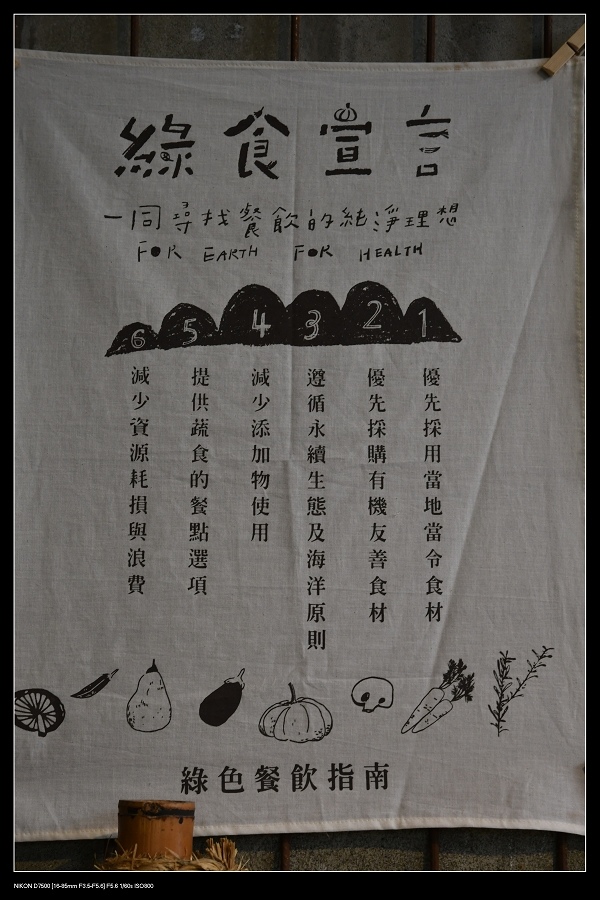 綠食宣言
一同尋找餐飲的純淨理想
FOR EARTH FOR HEALTH
1 優先採用當地當令食材
2 優先採購有機友善食材
3 遵循永續生態及海洋原則
4 減少添加物使用
5 提供蔬食的餐點選項
6 減少資源耗損與浪費
綠色餐飲指南
NIKON D7500 [16-85mm F3.5-F5.6] F5.6 1/60s ISO800